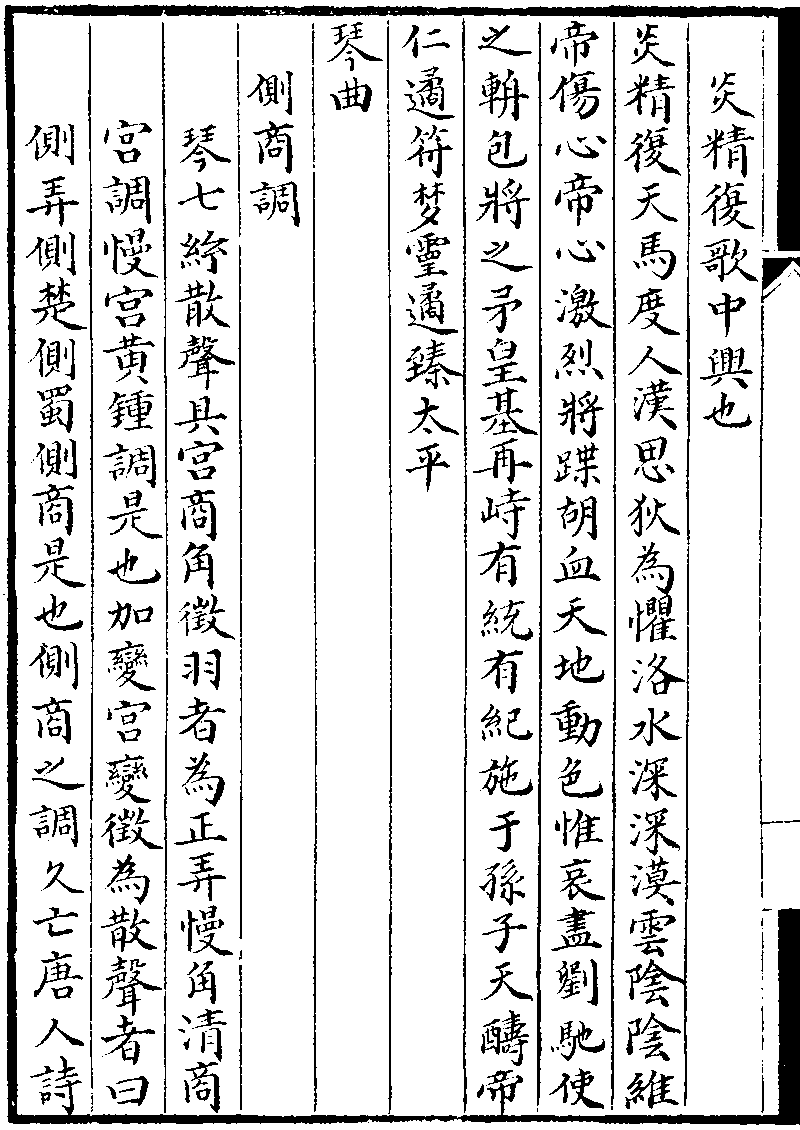 炎精復歌中興也
炎精復天馬度人漢思狄為懼洛水深深漠雲陰陰維
帝傷心帝心激烈將蹀胡血天地動色惟哀盡劉馳使
之輈包將之矛皇基再峙有統有紀施于孫子天醻帝
仁遹符夢靈遹臻太平
琴曲
側商調
琴七絃散聲具宮商角徵羽者為正弄慢角清商
宮調慢宮黃鍾調是也加變宮變徵為散聲者曰
側弄側楚側蜀側商是也側商之調久亡唐人詩